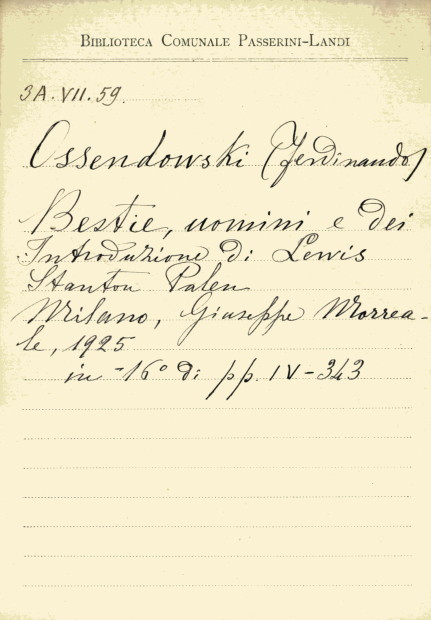 BIBLIOTECA COMUNALE PASSERINI-LANDI
3A.VII.59
Ossendowski (Ferdinando)
Bestie, uomini e dei
Introduzione di Lewis
Stanton Palen
Milano, Giuseppe Morrea-
le, 1925
in -16° di pp. IV-343